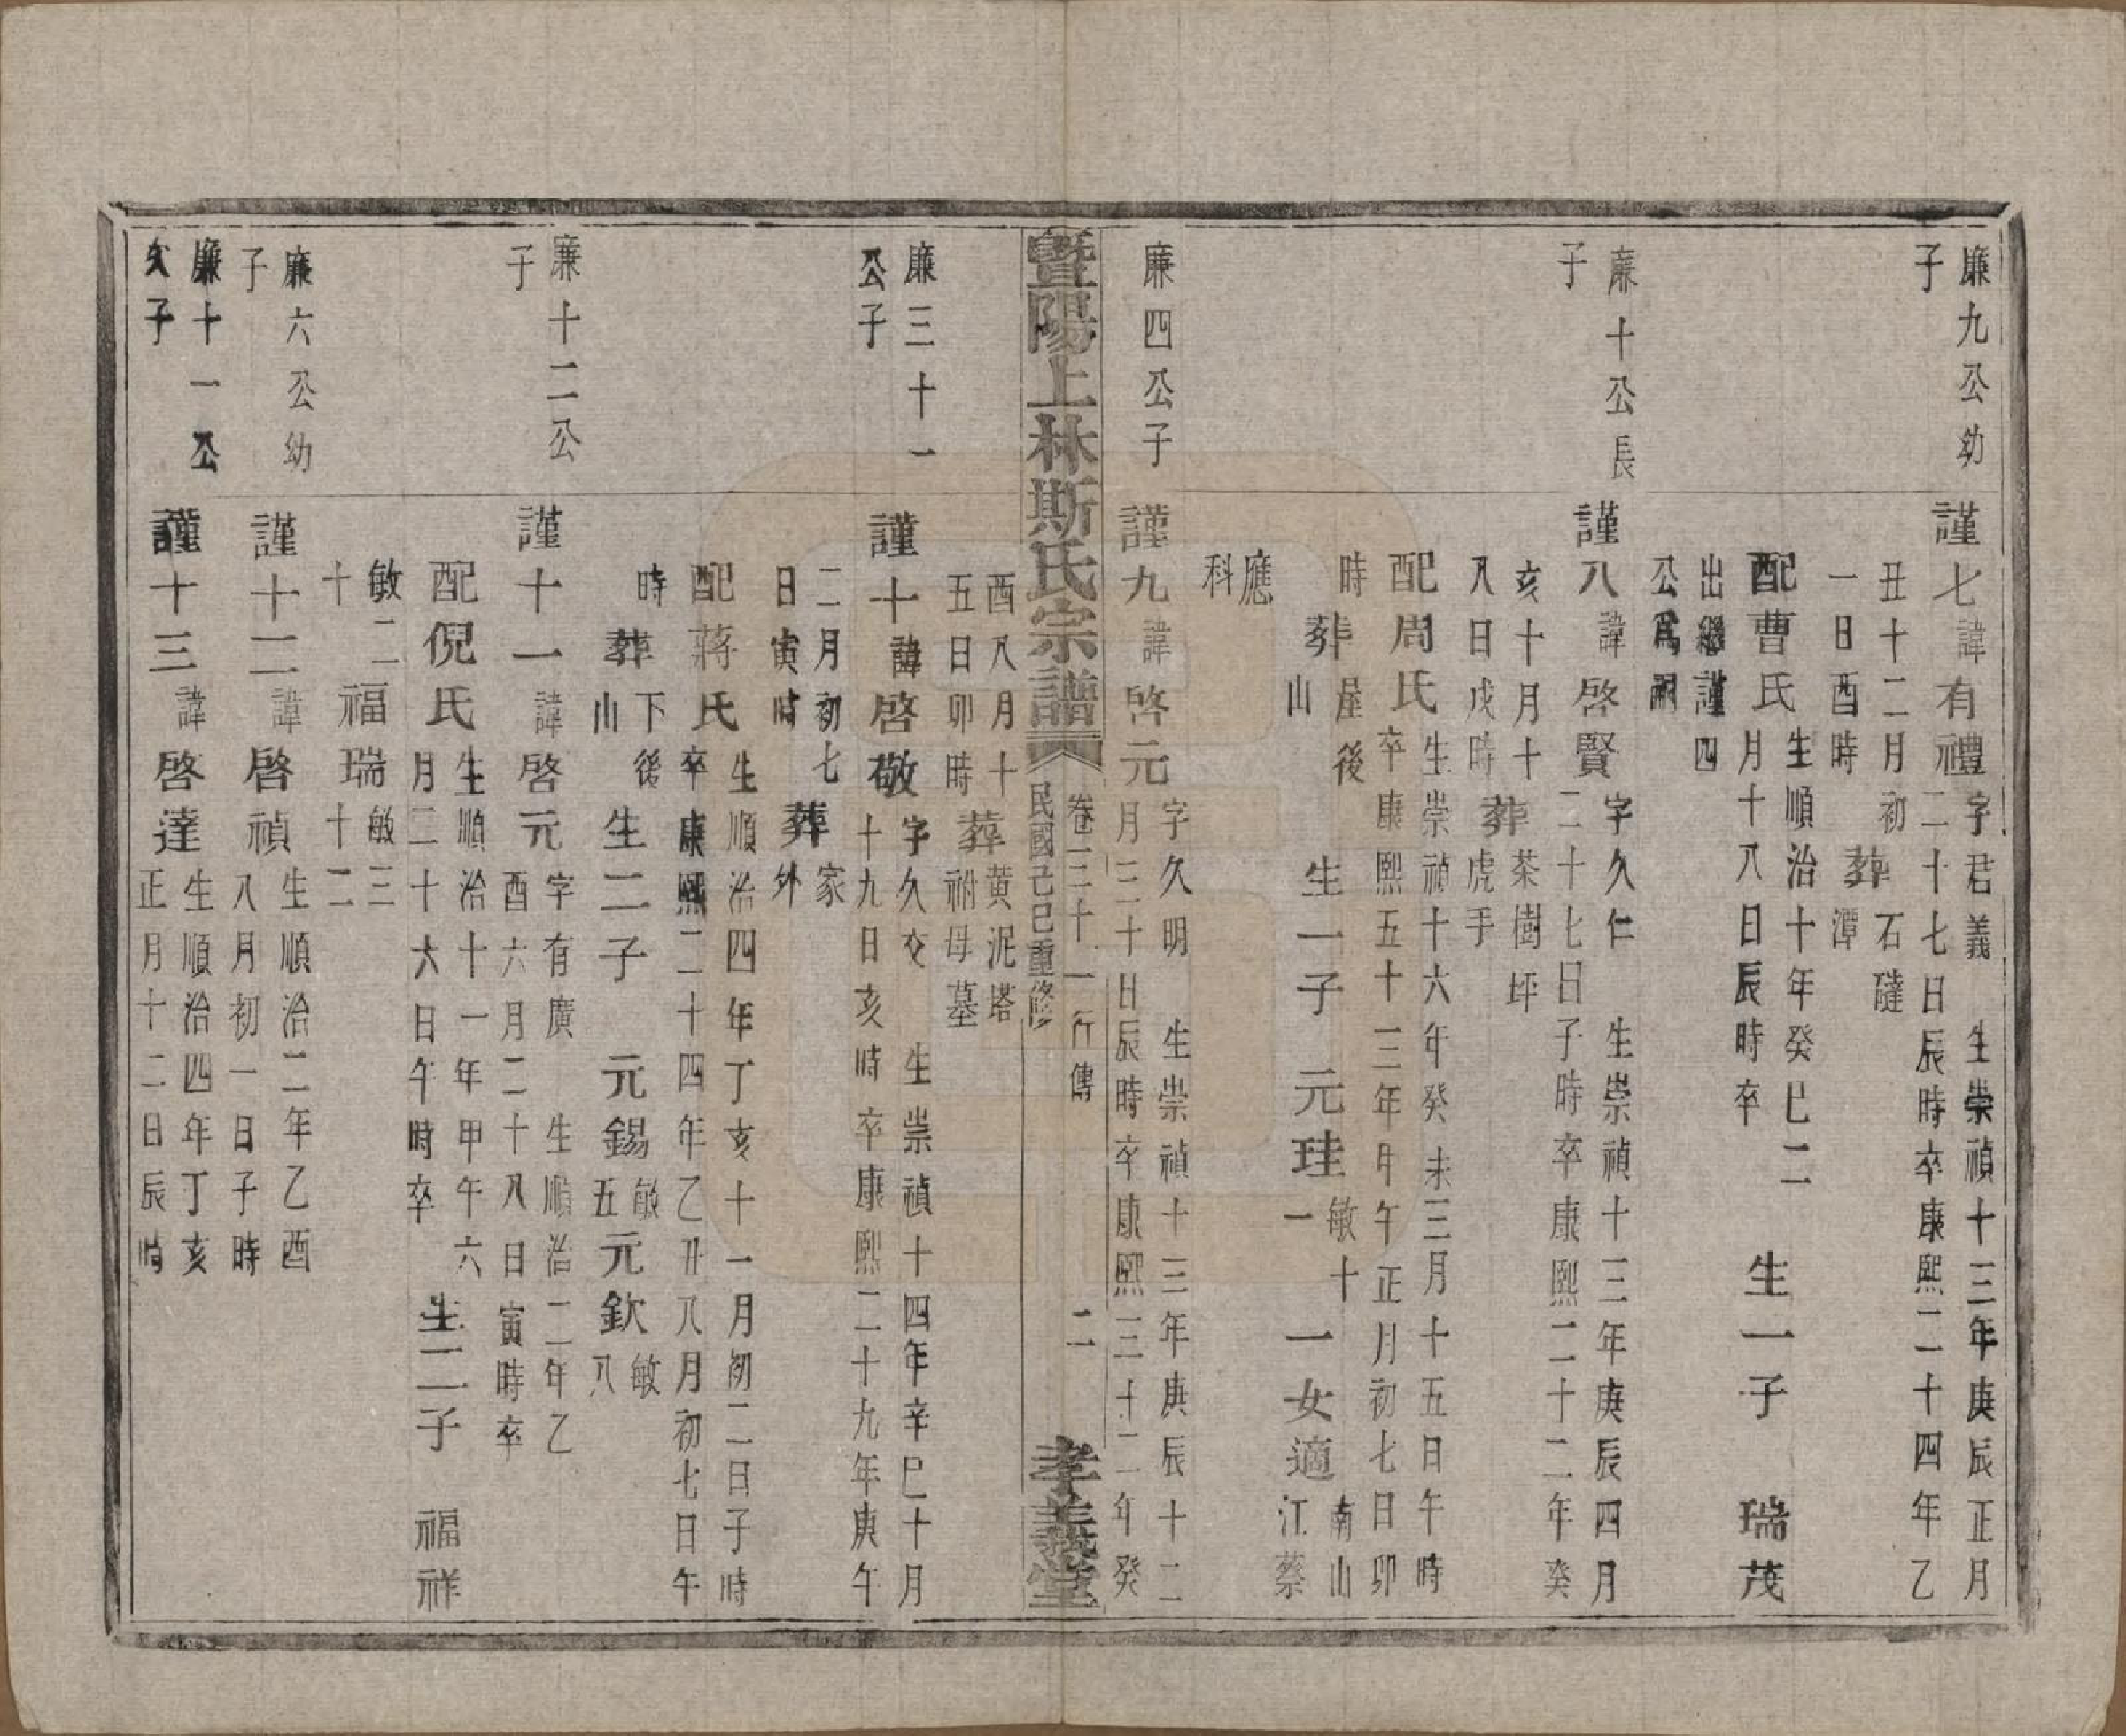 廉九公幼
子
謹七諱有禮
字君義　生崇禎十三年庚辰正月
二十七日辰時卒康熙二十四年乙
丑十二月初
一日酉時
葬
石䃮
潭
配曹氏
生順治十年癸巳二
月十八日辰時卒
生一子　瑞茂
出繼謹四
公爲嗣
廉十公長
子
謹八諱啓賢
字久仁　生崇禎十三年庚辰四月
二十七日子時卒康熙二十二年癸
亥十月十
八日戌時
葬
茶樹坪
虎手
配周氏
生崇禎十六年癸未三月十五日午時
卒康熙五十三年甲午正月初七日卯
時
葬
屋後
山
生一子　元珪
敏十
一
一女適
南山
江蔡
應
科
廉四公子
謹九諱啓元
字久明　生崇禎十三年庚辰十二
月三十日辰時卒康熙三十二年癸
暨陽上林斯氏宗譜
卷三十一　行傳　二
民國己巳重修
孝義堂
酉八月十
五日卯時
葬
黄泥塔
祔母墓
廉三十一
公子
謹十諱啓敬
字久交　生崇禎十四年辛巳十月
十九日亥時卒康熙二十九年庚午
二月初七
日寅時
葬
家
外
配蔣氏
生順治四年丁亥十一月初二日子時
卒康熙二十四年乙丑八月初七日午
時
葬
下後
山
生二子　元錫
敏
五
元欽
敏
八
廉十二公
子
謹十一諱啓元
字有廣　生順治二年乙
酉六月二十八日寅時卒
配倪氏
生順治十一年甲午六
月二十六日午時卒
生二子　福祥
敏二
十
福瑞
敏三
十二
廉六公幼
子
謹十二諱啓禎
生順治二年乙酉
八月初一日子時
廉十一公
久子
謹十三諱啓達
生順治四年丁亥
正月十二日辰時